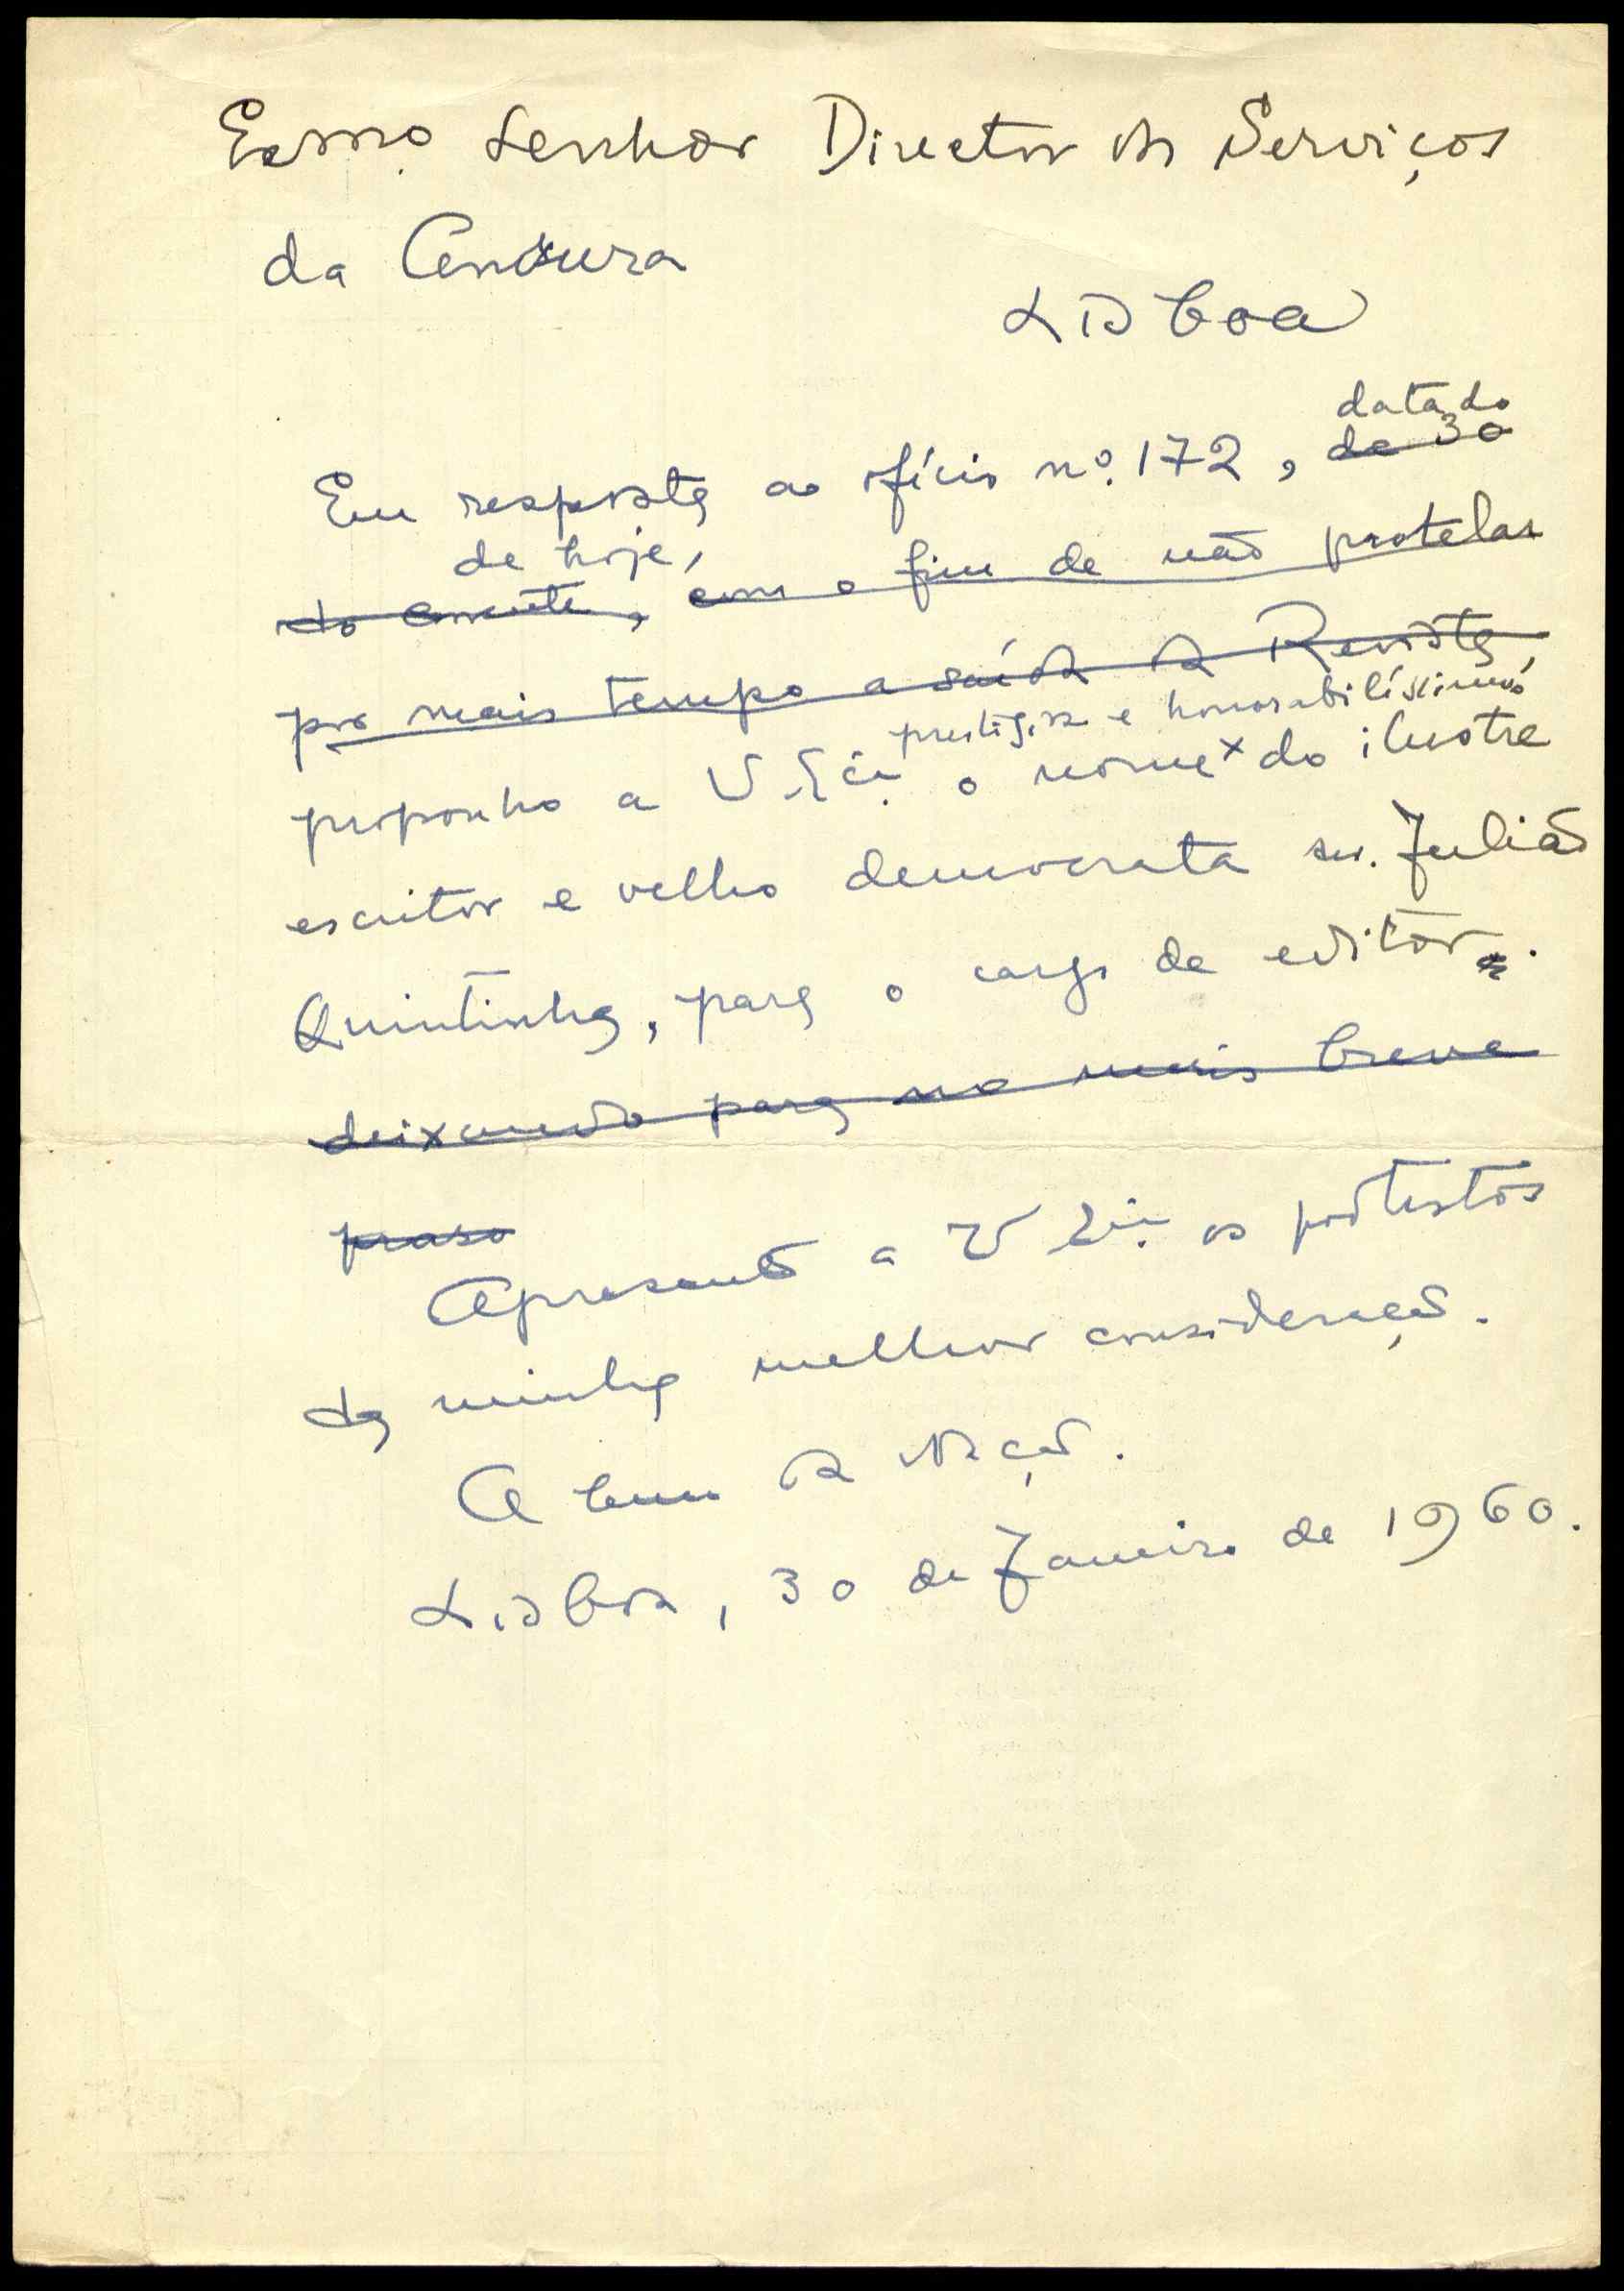 Exmo. Senhor Director dos Serviços
da Censura
Lisboa
datado
Em resposta ao ofício nº. 172, de 30
de hoje,
do corrente, com o fim de não protelar
por mais tempo a saída da Revista,
prestigioso e honorabilíssimo
proponho a V. Excia. o nome x do ilustre
escritor e velho democrata sr. Julião
Quintinha, para o cargo de editor.
deixando para no mais breve
praso
Apresento a V Excia. os protestos
da minha melhor consideração.
A bem da Nação.
Lisboa, 30 de Janeiro de 1960.